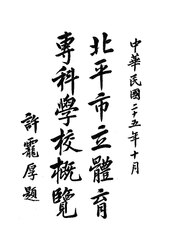 中華民國二十五年十月
北平市立體育
專科學校概覽
許靇厚題